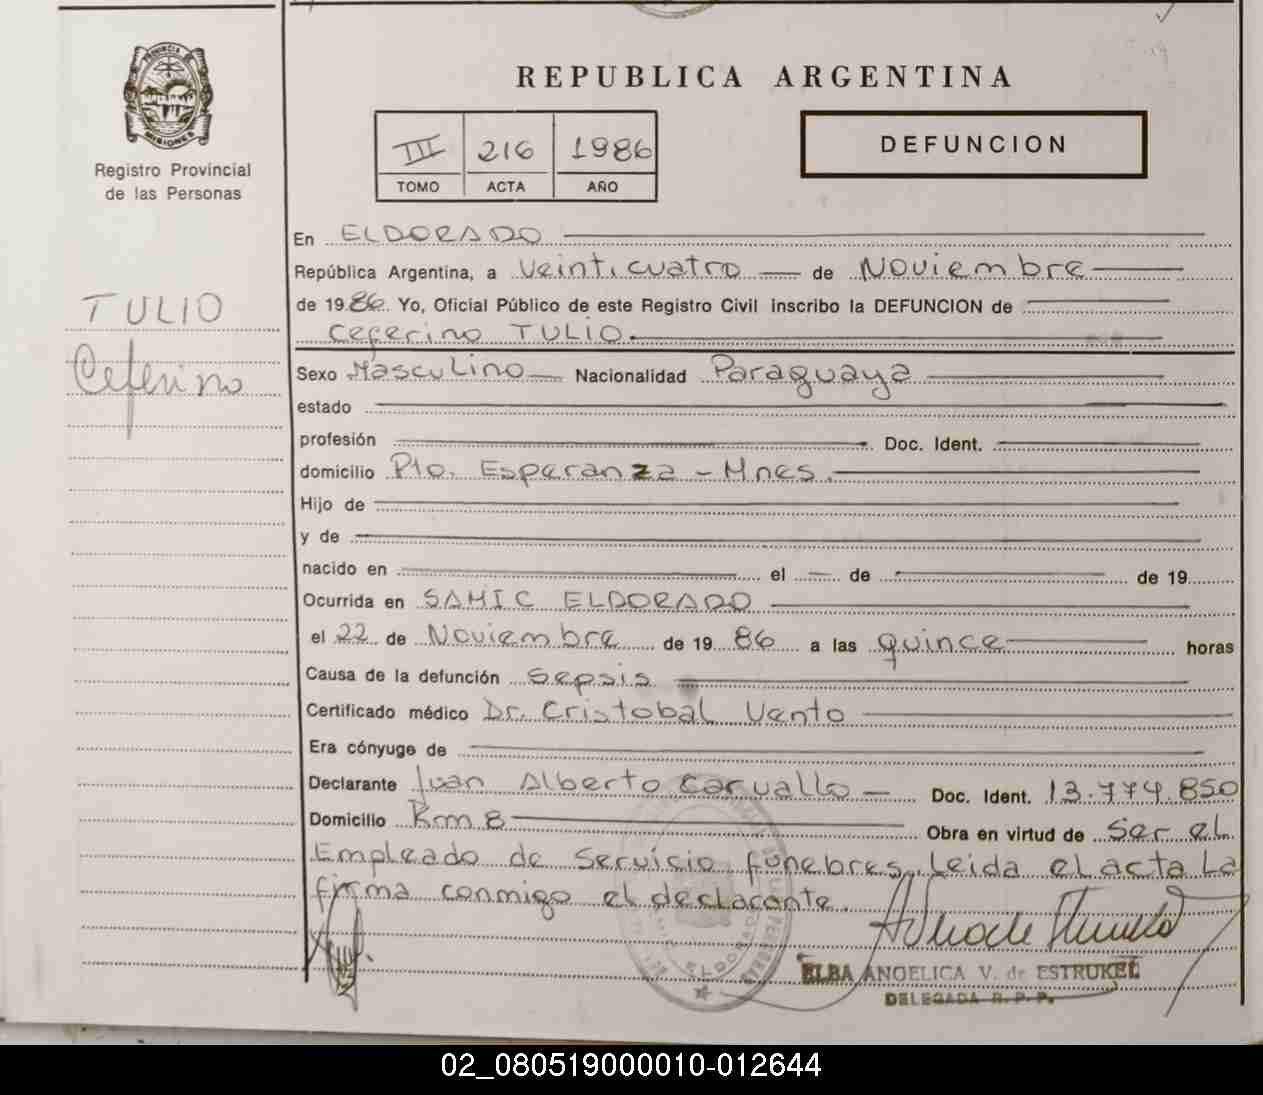 PROVINCIA DE
MISIONES
Registro Provincial
de las Personas
TULIO
Ceferino
REPUBLICA ARGENTINA
III 216 1986
TOMO ACTA AÑO
DEFUNCION
En ELDORADO
República Argentina, a Veinticuatro de Noviembre
de 1986 Yo, Oficial Público de este Registro Civil inscribo la DEFUNCION de
Ceferino TULIO.
Sexo Masculino Nacionalidad Paraguaya
estado
profesión Doc. Ident.
domicilio Pto. Esperanza - Mnes.
Hijo de
y de
nacido en el de de 19
Ocurrida en SAMIC ELDORADO
el 22 de Noviembre de 1986 a las quince horas
Causa de la defunción Sepsis
Certificado médico Dr. Cristobal Vento
Era cónyuge de
Declarante Juan Alberto Carvallo Doc. Ident. 13.774.850
Domicilio Km 8 Obra en virtud de Ser el
Empleado de Servicio fúnebres. Leida el acta La
firma conmigo el declarante.
ELDORADO
ELBA ANGELICA V. de ESTRUKEL
DELEGADA R. P. P.
02_080519000010-012644